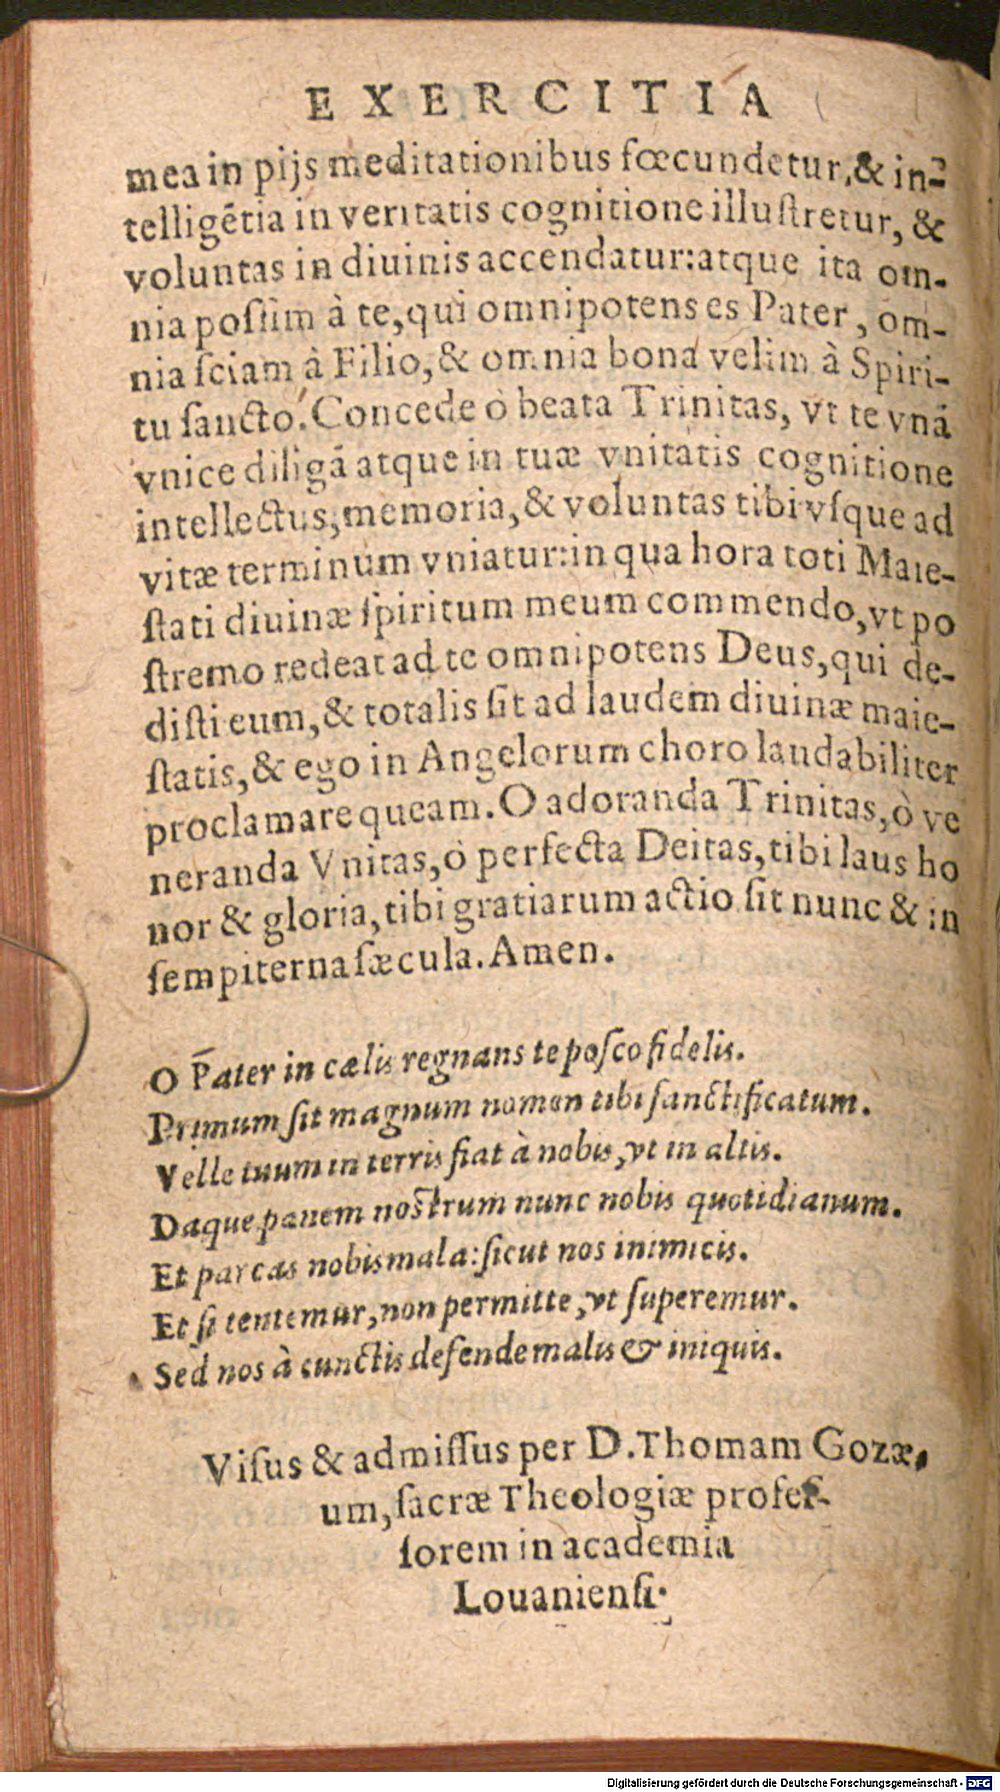 EXERCITIA
mea in pijs meditationibus fœcundetur, & in-
telligẽtia in veritatis cognitione illuſtretur, &
voluntas in diuinis accendatur: atque ita om-
nia poſſim à te, qui omnipotens es Pater, om-
nia ſciam à Filio, & omnia bona velim à Spiri-
tu ſancto. Concede ò beata Trinitas, vt te vnã
vnice diligã atque in tuæ vnitatis cognitione
intellectus, memoria, & voluntas tibi vſque ad
vitæ terminum vniatur: in qua hora toti Maie-
ſtati diuinæ ſpiritum meum commendo, vt po
ſtremo redeat ad te omnipotens Deus, qui de-
diſti eum, & totalis ſit ad laudem diuinæ maie-
ſtatis, & ego in Angelorum choro laudabiliter
proclamare queam. O adoranda Trinitas, ò ve
neranda Vnitas, ò perfecta Deitas, tibi laus ho
nor & gloria, tibi gratiarum actio ſit nunc & in
ſempiterna ſæcula. Amen.
O Pater in cælis regnans te poſco fidelis.
Primum ſit magnum nomen tibi ſanctificatum.
Velle tuum in terris fiat à nobis, vt in altis.
Daque panem noſtrum nunc nobis quotidianum.
Et parcas nobis mala: ſicut nos inimicis.
Et ſi tentemur, non permitte, vt ſuperemur.
Sed nos à cunctis defende malis & iniquis.
Viſus & admiſſus per D. Thomam Gozæ,
um, ſacræ Theologiæ profeſ-
ſorem in academia
Louanienſi.
Digitalisierung gefördert durch die Deutsche Forschungsgemeinschaft - DFG